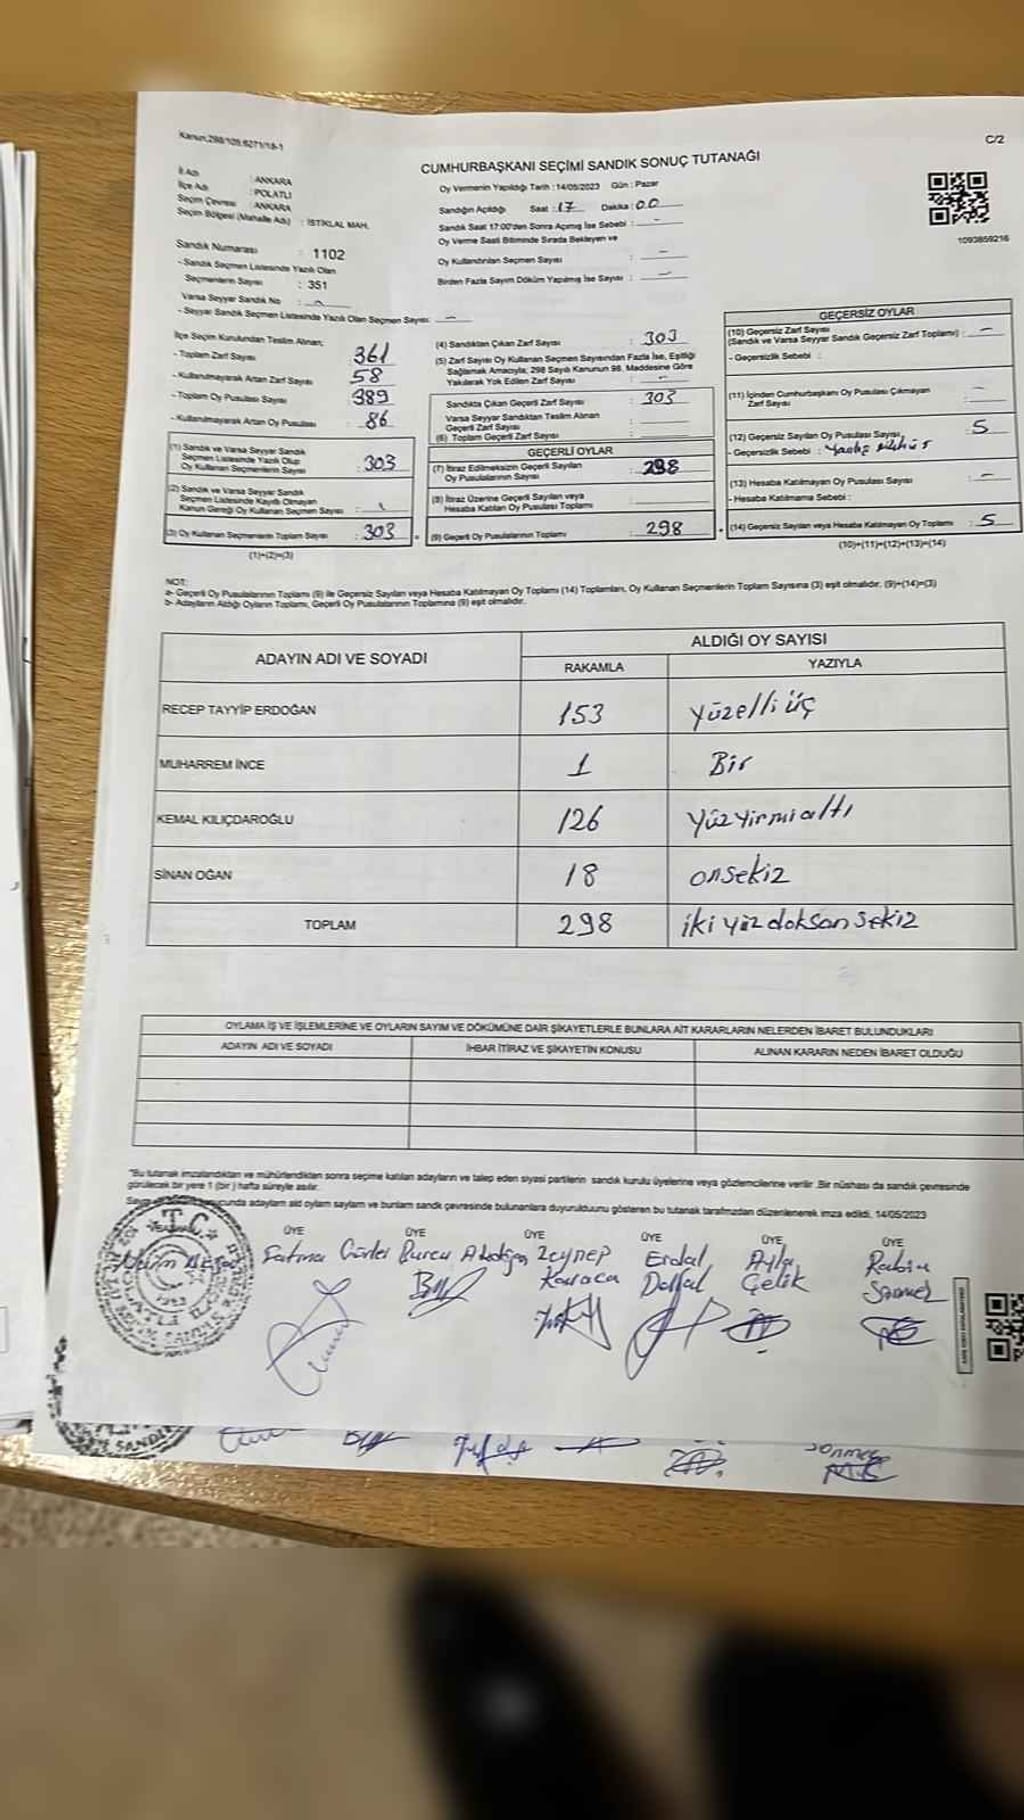 Kanun:298/105.6271/18-1
C/2
CUMHURBAŞKANI SEÇİMİ SANDIK SONUÇ TUTANAĞI
İl Adı : ANKARA
İlçe Adı : POLATLI
Seçim Çevresi : ANKARA
Seçim Bölgesi (Mahalle Adı) : İSTİKLAL MAH.
Sandık Numarası : 1102
- Sandık Seçmen Listesinde Yazılı Olan
Seçmenlerin Sayısı : 351
Varsa Seyyar Sandık No :
- Seyyar Sandık Seçmen Listesinde Yazılı Olan Seçmen Sayısı: —
Oy Vermenin Yapıldığı Tarih : 14/05/2023 Gün : Pazar
Sandığın Açıldığı Saat : 17 Dakika : 00
Sandık Saat 17:00'den Sonra Açılmış İse Sebebi : —
Oy Verme Saati Bitiminde Sırada Bekleyen ve
Oy Kullandırılan Seçmen Sayısı : —
Birden Fazla Sayım Döküm Yapılmış İse Sayısı : —
1093859216
İlçe Seçim Kurulundan Teslim Alınan;
- Toplam Zarf Sayısı 361
- Kullanılmayarak Artan Zarf Sayısı 58
- Toplam Oy Pusulası Sayısı 389
- Kullanılmayarak Artan Oy Pusulası : 86
(1) Sandık ve Varsa Seyyar Sandık
Seçmen Listesinde Yazılı Olup
Oy Kullanan Seçmenlerin Sayısı : 303
(2) Sandık ve Varsa Seyyar Sandık
Seçmen Listesinde Kayıtlı Olmayan
Kanun Gereği Oy Kullanan Seçmen Sayısı :
(3) Oy Kullanan Seçmenlerin Toplam Sayısı : 303
(1)+(2)=(3)
(4) Sandıktan Çıkan Zarf Sayısı : 303
(5) Zarf Sayısı Oy Kullanan Seçmen Sayısından Fazla İse, Eşitliği
Sağlamak Amacıyla; 298 Sayılı Kanunun 98. Maddesine Göre
Yakılarak Yok Edilen Zarf Sayısı : —
Sandıkta Çıkan Geçerli Zarf Sayısı : 303
Varsa Seyyar Sandıktan Teslim Alınan
Geçerli Zarf Sayısı :
(6) Toplam Geçerli Zarf Sayısı :
GEÇERLİ OYLAR
(7) İtiraz Edilmeksizin Geçerli Sayılan
Oy Pusulalarının Sayısı : 298
(8) İtiraz Üzerine Geçerli Sayılan veya
Hesaba Katılan Oy Pusulası Toplamı :
(9) Geçerli Oy Pusulalarının Toplamı : 298
GEÇERSİZ OYLAR
(10) Geçersiz Zarf Sayısı
(Sandık ve Varsa Seyyar Sandık Geçersiz Zarf Toplamı) : —
- Geçersizlik Sebebi :
(11) İçinden Cumhurbaşkanı Oy Pusulası Çıkmayan
Zarf Sayısı : —
(12) Geçersiz Sayılan Oy Pusulası Sayısı : 5
- Geçersizlik Sebebi :
(13) Hesaba Katılmayan Oy Pusulası Sayısı : —
- Hesaba Katılmama Sebebi :
(14) Geçersiz Sayılan veya Hesaba Katılmayan Oy Toplamı : 5
(10)+(11)+(12)+(13)=(14)
NOT:
a- Geçerli Oy Pusulalarının Toplamı (9) ile Geçersiz Sayılan veya Hesaba Katılmayan Oy Toplamı (14) Toplamları, Oy Kullanan Seçmenlerin Toplam Sayısına (3) eşit olmalıdır. (9)+(14)=(3)
b- Adayların Aldığı Oyların Toplamı, Geçerli Oy Pusulalarının Toplamına (9) eşit olmalıdır.
ADAYIN ADI VE SOYADI
ALDIĞI OY SAYISI
RAKAMLA YAZIYLA
RECEP TAYYİP ERDOĞAN 153 yüzelli üç
MUHARREM İNCE 1 Bir
KEMAL KILIÇDAROĞLU 126 yüzyirmialtı
SİNAN OĞAN 18 onsekiz
TOPLAM 298 iki yüz doksan sekiz
OYLAMA İŞ VE İŞLEMLERİNE VE OYLARIN SAYIM VE DÖKÜMÜNE DAİR ŞİKAYETLERLE BUNLARA AİT KARARLARIN NELERDEN İBARET BULUNDUKLARI
ADAYIN ADI VE SOYADI İHBAR İTİRAZ VE ŞİKAYETİN KONUSU ALINAN KARARIN NEDEN İBARET OLDUĞU
"Bu tutanak imzalandıktan ve mühürlendikten sonra seçime katılan adayların ve talep eden siyasi partilerin sandık kurulu üyelerine veya gözlemcilerine verilir. Bir nüshası da sandık çevresinde
görülecek bir yere 1 (bir) hafta süreyle asılır.
adayların aldı oyların sayların ve bunların sandık çevresinde bulunanlara duyurulduğunu gösteren bu tutanak tarafımızdan düzenlenerek imza edildi. 14/05/2023
ÜYE ÜYE ÜYE ÜYE ÜYE ÜYE
Fatma Gürler Burcu Zeynep Karaca Erdal Ayla Çelik Rabia Sönmez
T.C.